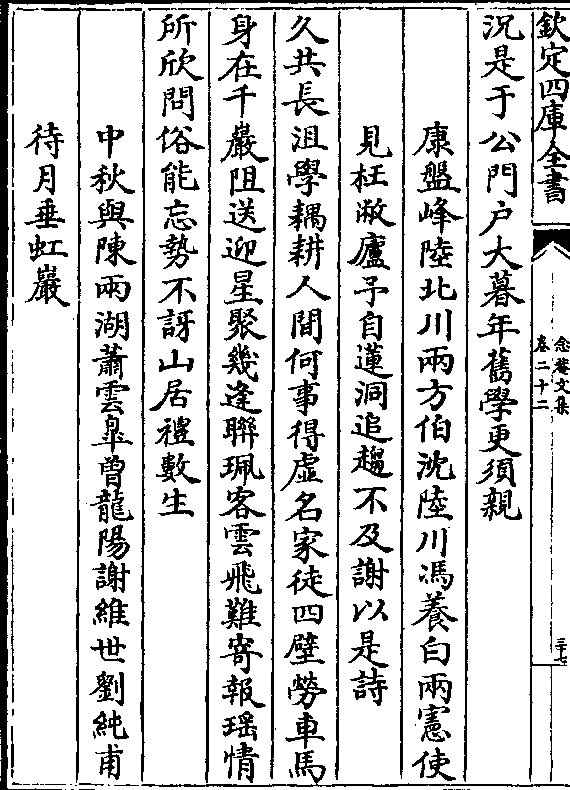 欽定四庫全書
念菴文集
卷二十二
三十七
況是于公門戶大暮年舊學更須親
康盤峰陸北川兩方伯沈陸川馮養白兩憲使
見枉敝廬予自蓮洞追趨不及謝以是詩
久共長沮學耦耕人間何事得虛名家徒四壁勞車馬
身在千巖阻送迎星聚幾逢聯珮客雲飛難寄報瑶情
所欣問俗能忘勢不訝山居禮數生
中秋與陳兩湖蕭雲臯曾龍陽謝維世劉純甫
待月垂虹巖